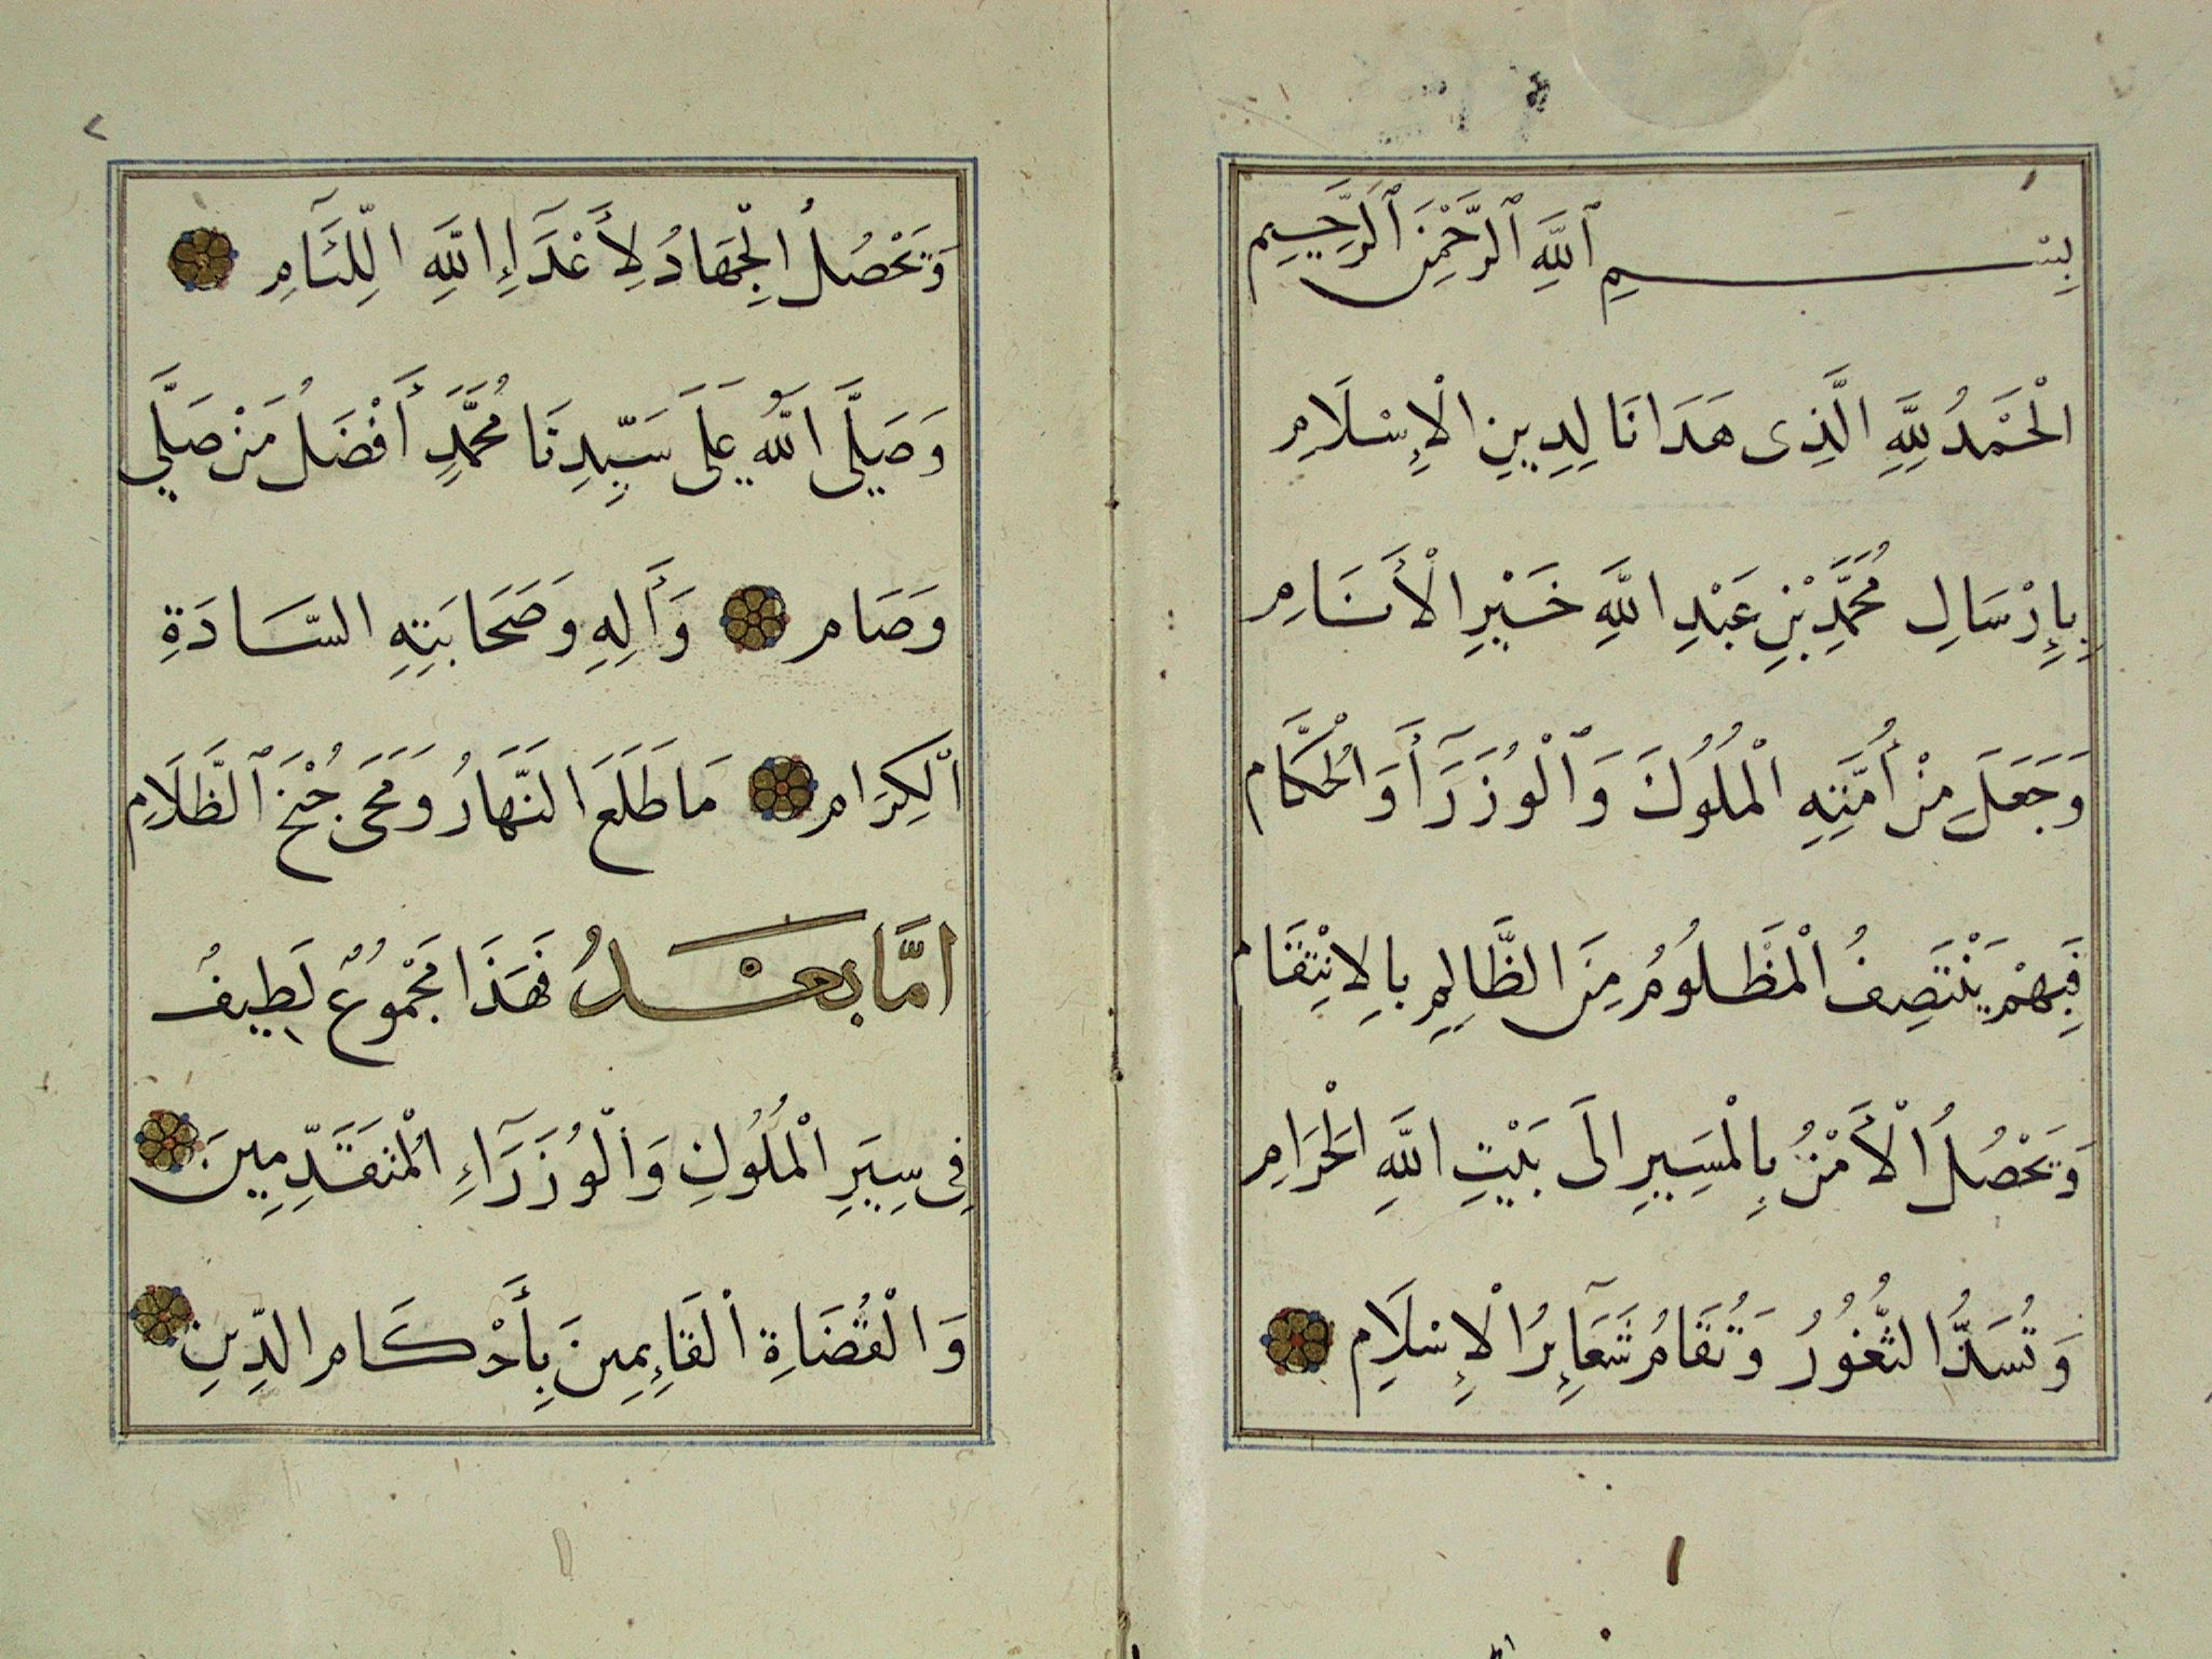 بِسْمِ ٱللَّهِ ٱلرَّحْمَنِ ٱلرَّحِيمِ
الْحَمْدُ لِلَّهِ الَّذِى هَدَانَا لِدِينِ الْإِسْلَامِ
بِإِرْسَالِ مُحَمَّدِ بْنِ عَبْدِ اللَّهِ خَيْرِ الْأَنَامِ
وَجَعَلَ مِنْ أُمَّتِهِ الْمُلُوكَ وَٱلْوُزَرَآ وَالْحُكَّام
فَبِهِمْ يَنْتَصِفُ الْمَظْلُومُ مِنَ الظَّالِمِ بِالِانْتِقَام
وَيَحْصُلُ الْأَمْنُ بِالْمَسِيرِ الَى بَيْتِ اللَّهِ الْحَرَامِ
وَتُسَدُّ الثُّغُورُ وَتُقَامُ شَعَآئِرُ الْإِسْلَامِ
وَيَحْصُلُ الْجِهَادُ لِأَعْدَآءِ اللَّهِ اللِّئَامِ
وَصَلَّى اللَّهُ عَلَى سَيِّدِنَا مُحَمَّدٍ أَفْضَلُ مَنْ صَلَّى
وَصَام وَأَلِهِ وَصَحَابَتِهِ السَّادَةِ
الْكِرَامِ مَا طَلَعَ النَّهَارُ وَمَحَى جُنْحَ ٱلظَّلَامِ
امَّا بَعْدُ فَهَذَا مَجْمُوعٌ لَطِيفٌ
فِى سِيَرِ الْمُلُوكِ وَالْوُزَرَآءِ الْمُتَقَدِّمِينَ
وَالْقُضَاةِ الْقَائِمِينَ بِأَحْكَامِ الدِّينِ
٢
١